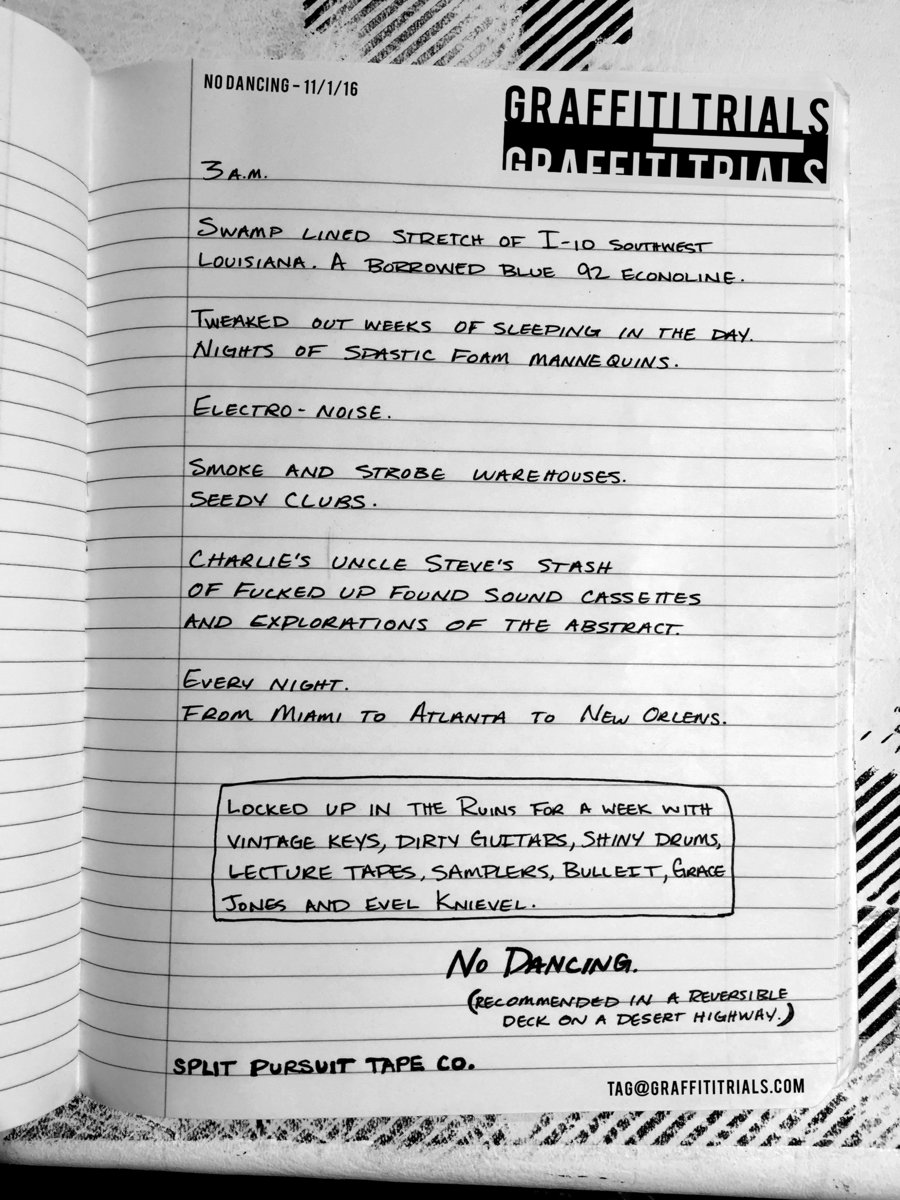 NO DANCING – 11/1/16
GRAFFITI TRIALS
GRAFFITI TRIALS
3 A.M.
SWAMP LINED STRETCH OF I-10 SOUTHWEST
LOUISIANA. A BORROWED BLUE 92 ECONOLINE.
TWEAKED OUT WEEKS OF SLEEPING IN THE DAY.
NIGHTS OF SPASTIC FOAM MANNEQUINS.
ELECTRO-NOISE.
SMOKE AND STROBE WAREHOUSES.
SEEDY CLUBS.
CHARLIE'S UNCLE STEVE'S STASH
OF FUCKED UP FOUND SOUND CASSETTES
AND EXPLORATIONS OF THE ABSTRACT.
EVERY NIGHT.
FROM MIAMI TO ATLANTA TO NEW ORLENS.
LOCKED UP IN THE RUINS FOR A WEEK WITH
VINTAGE KEYS, DIRTY GUITARS, SHINY DRUMS,
LECTURE TAPES, SAMPLERS, BULLEIT, GRACE
JONES AND EVEL KNIEVEL.
NO DANCING.
(RECOMMENDED IN A REVERSIBLE
DECK ON A DESERT HIGHWAY.)
SPLIT PURSUIT TAPE CO.
TAG@GRAFFITITRIALS.COM